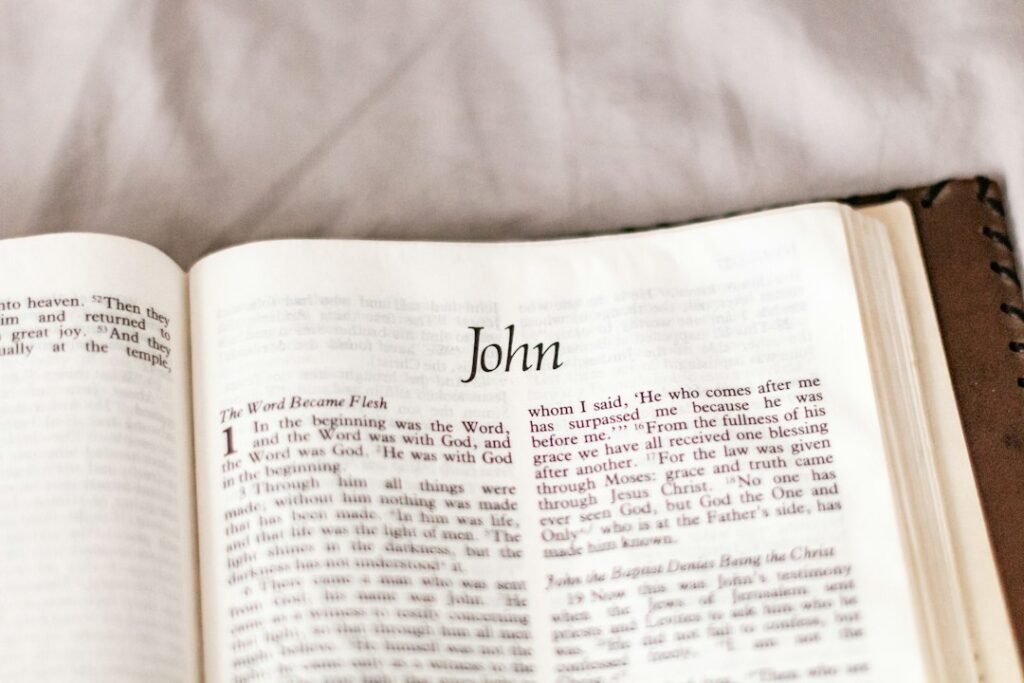 nto heaven. 52Then they
im and returned to
great joy. 53And they
ually at the temple,
John
The Word Became Flesh
1 In the beginning was the Word,
and the Word was with God, and
the Word was God. 2He was with God
in the beginning.
3 Through him all things were
made; without him nothing was made
that has been made. 4In him was life,
and that life was the light of men. 5The
light shines in the darkness, but the
darkness has not understood it.
6 There came a man who was sent
from God; his name was John. 7He
came as a witness to testify concerning
that light, so that through him all men
might believe. 8He himself was not the
he came only as a witness to the
whom I said, ‘He who comes after me
has surpassed me because he was
before me.’ ” 16From the fullness of his
grace we have all received one blessing
after another. 17For the law was given
through Moses; grace and truth came
through Jesus Christ. 18No one has
ever seen God, but God the One and
Only, who is at the Father's side, has
made him known.
John the Baptist Denies Being the Christ
19 Now this was John's testimony
when the Jews of Jerusalem sent
priests and Levites to ask him who he
was. 20He did not fail to confess, but
confessed freely, “I am not the